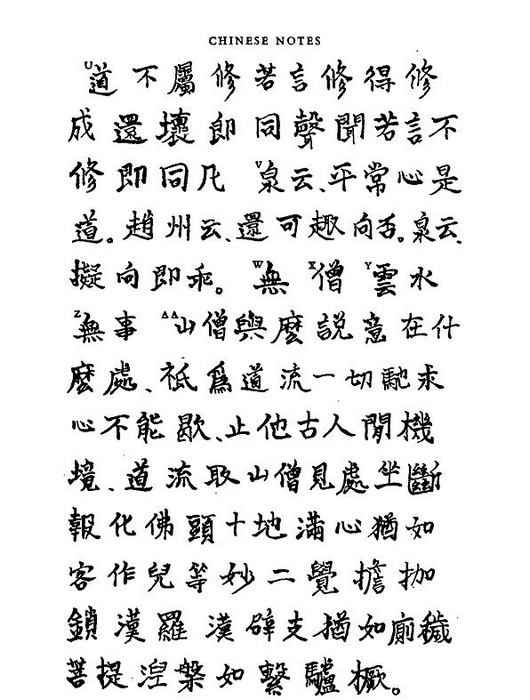 CHINESE NOTES
U道不屬修若言修得修
成還壞即同聲聞若言不
修即同凡 V泉云、平常心是
道。趙州云、還可趣向否。泉云、
擬向即乖。 W無 X僧 Y雲水
Z無事 AA山僧與麼說意在什
麼處、祇爲道流一切馳求
心不能歇、止他古人閒機
境、道流取山僧見處坐斷
報化佛頭十地滿心猶如
客作兒等妙二覺擔枷
鎖漢羅漢辟支猶如廁穢
菩提涅槃如繫驢橛。